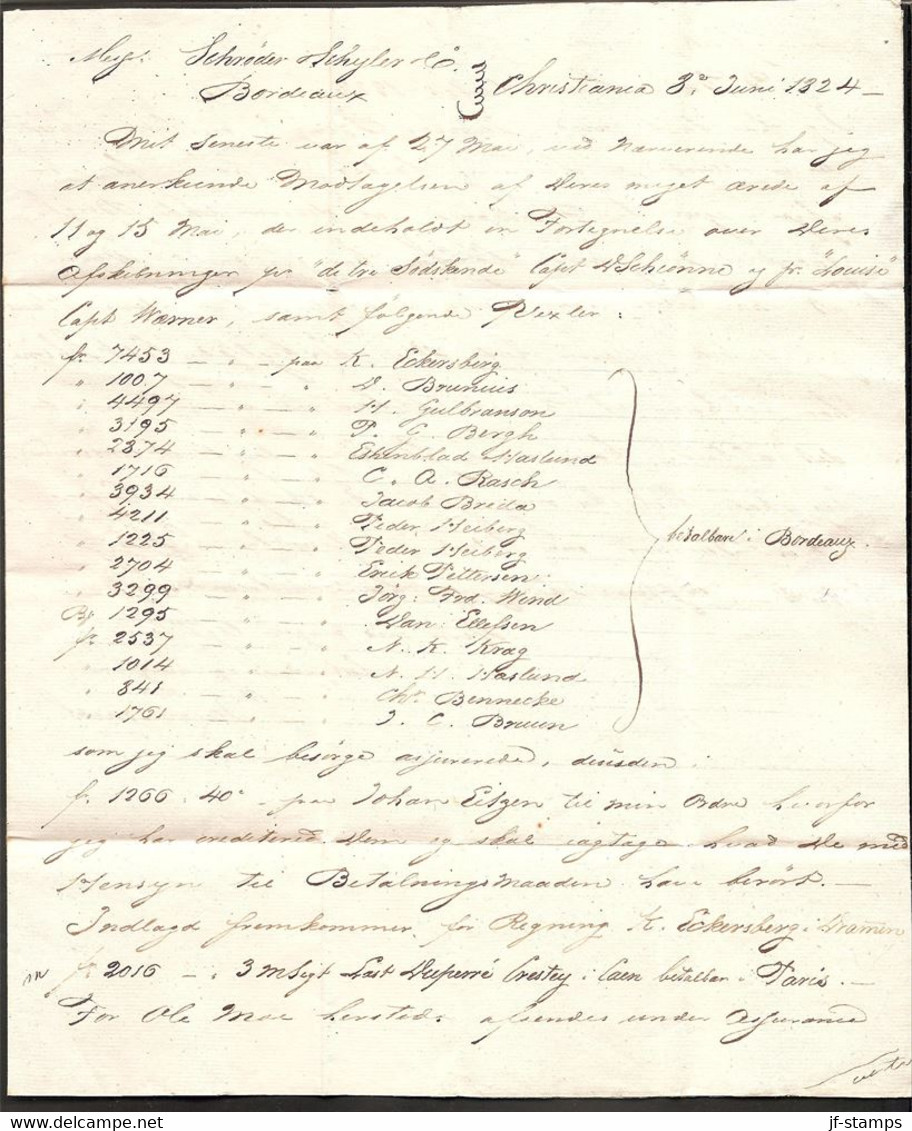 Messrs. Schröder Schyler & Co.
Bordeaux Christiania 8de Juni 1824 —
Mit Seneste var af 27 Mai, ved Nærværende har jeg
at anerkiende Modtagelsen af Deres meget ærede af
11 og 15 Mai, der indeholdt en Fortegnelse over Deres
Afskibninger pr "de tre Södskende" Capt og pr. "Louise"
Capt Wærner, samt fölgende Vexler:
fr. 7453 — " — paa K. Eckersberg
" 1007 — " — " D. Brunius
" 4497 — " — " H. Gulbranson
" 3195 — " — " P. G. Bergh
" 2874 — " — " Haslund
" 1716 — " — " C. A. Rasch
" 3934 — " — " Jacob Breda
" 4211 — " — " Peder Heiberg
" 1225 — " — " Peder Heiberg
" 2704 — " — " Erik Pettersen betalbare i Bordeaux.
" 3299 — " — " Jörg: Frd. Wend
1295 — " — " Dan: Ellefsen
fr. 2537 — " — " N. K. Krag
" 1014 — " — " N. H. Haslund
" 841 — " — " Chr. Bennecke
" 1761 — " — " J. C. Bruun
som jeg skal besörge asjurerede, desuden:
fr. 1266. 40c — paa Johan Eitzen til min Ordre hvorfor
jeg har crediteret Dem og skal iagtage hvad De med
Hensyn til Betalningsmaaden have berört. —
Indlagd fremkommer for Regning K. Eckersberg i Dramen
fr. 2016 — 3 m Sigt i Caen betalbar i Paris. —
For Ole Moe hersteds afsendes under Assurance